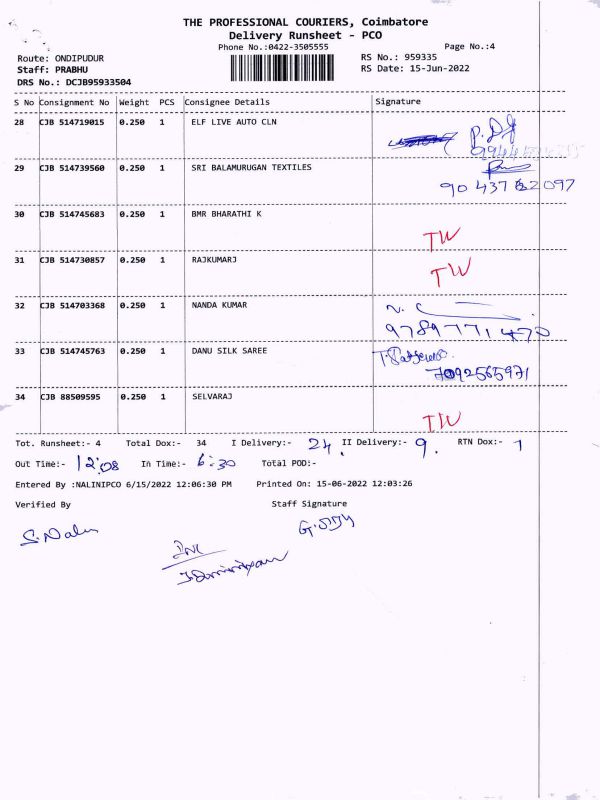 THE PROFESSIONAL COURIERS, Coimbatore
Delivery Runsheet - PCO
Phone No.:0422-3505555 Page No.:4
Route: ONDIPUDUR RS No.: 959335
Staff: PRABHU RS Date: 15-Jun-2022
DRS No.: DCJB95933504
S No Consignment No Weight PCS Consignee Details Signature
28 CJB 514719015 0.250 1 ELF LIVE AUTO CLN
29 CJB 514739560 0.250 1 SRI BALAMURUGAN TEXTILES
30 CJB 514745683 0.250 1 BMR BHARATHI K TW
31 CJB 514730857 0.250 1 RAJKUMARJ TW
32 CJB 514703368 0.250 1 NANDA KUMAR
9789771470
33 CJB 514745763 0.250 1 DANU SILK SAREE
7092565971
34 CJB 88509595 0.250 1 SELVARAJ TW
Tot. Runsheet:- 4 Total Dox:- 34 I Delivery:- 24. II Delivery:- 9. RTN Dox:- 1
Out Time:- 12:08 In Time:- 6:30 Total POD:-
Entered By :NALINIPCO 6/15/2022 12:06:30 PM Printed On: 15-06-2022 12:03:26
Verified By Staff Signature